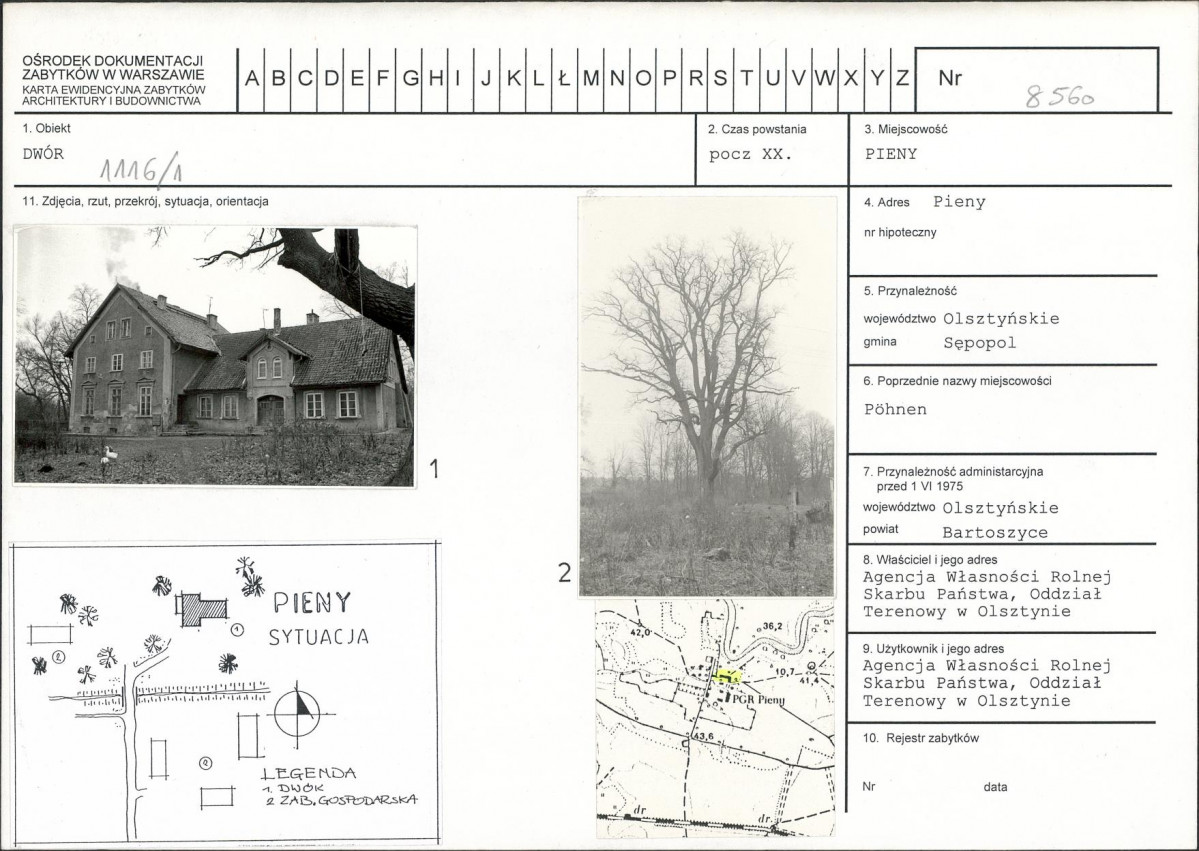 OŚRODEK DOKUMENTACJI
ZABYTKÓW W WARSZAWIE
KARTA EWIDENCYJNA ZABYTKÓW
ARCHITEKTURY I BUDOWNICTWA
A B C D E F G H I J K L Ł M N O P R S T U V W X Y Z
Nr 8560
1. Obiekt
DWÓR
1116/1
2. Czas powstania
pocz XX.
3. Miejscowość
PIENY
11. Zdjęcia, rzut, przekrój, sytuacja, orientacja
4. Adres Pieny
nr hipoteczny
5. Przynależność
województwo Olsztyńskie
gmina Sępopol
6. Poprzednie nazwy miejscowości
Pöhnen
7. Przynależność administarcyjna
przed 1 VI 1975
województwo Olsztyńskie
powiat Bartoszyce
8. Właściciel i jego adres
Agencja Własności Rolnej
Skarbu Państwa, Oddział
Terenowy w Olsztynie
9. Użytkownik i jego adres
Agencja Własności Rolnej
Skarbu Państwa, Oddział
Terenowy w Olsztynie
10. Rejestr zabytków
Nr data
1
2
PIENY
SYTUACJA
1
2
2
LEGENDA
1. DWÓR
2 ZAB. GOSPODARSKA
42,0
36,2
10,7
41,4
PGR Pieny
43,6
dr.
dr.